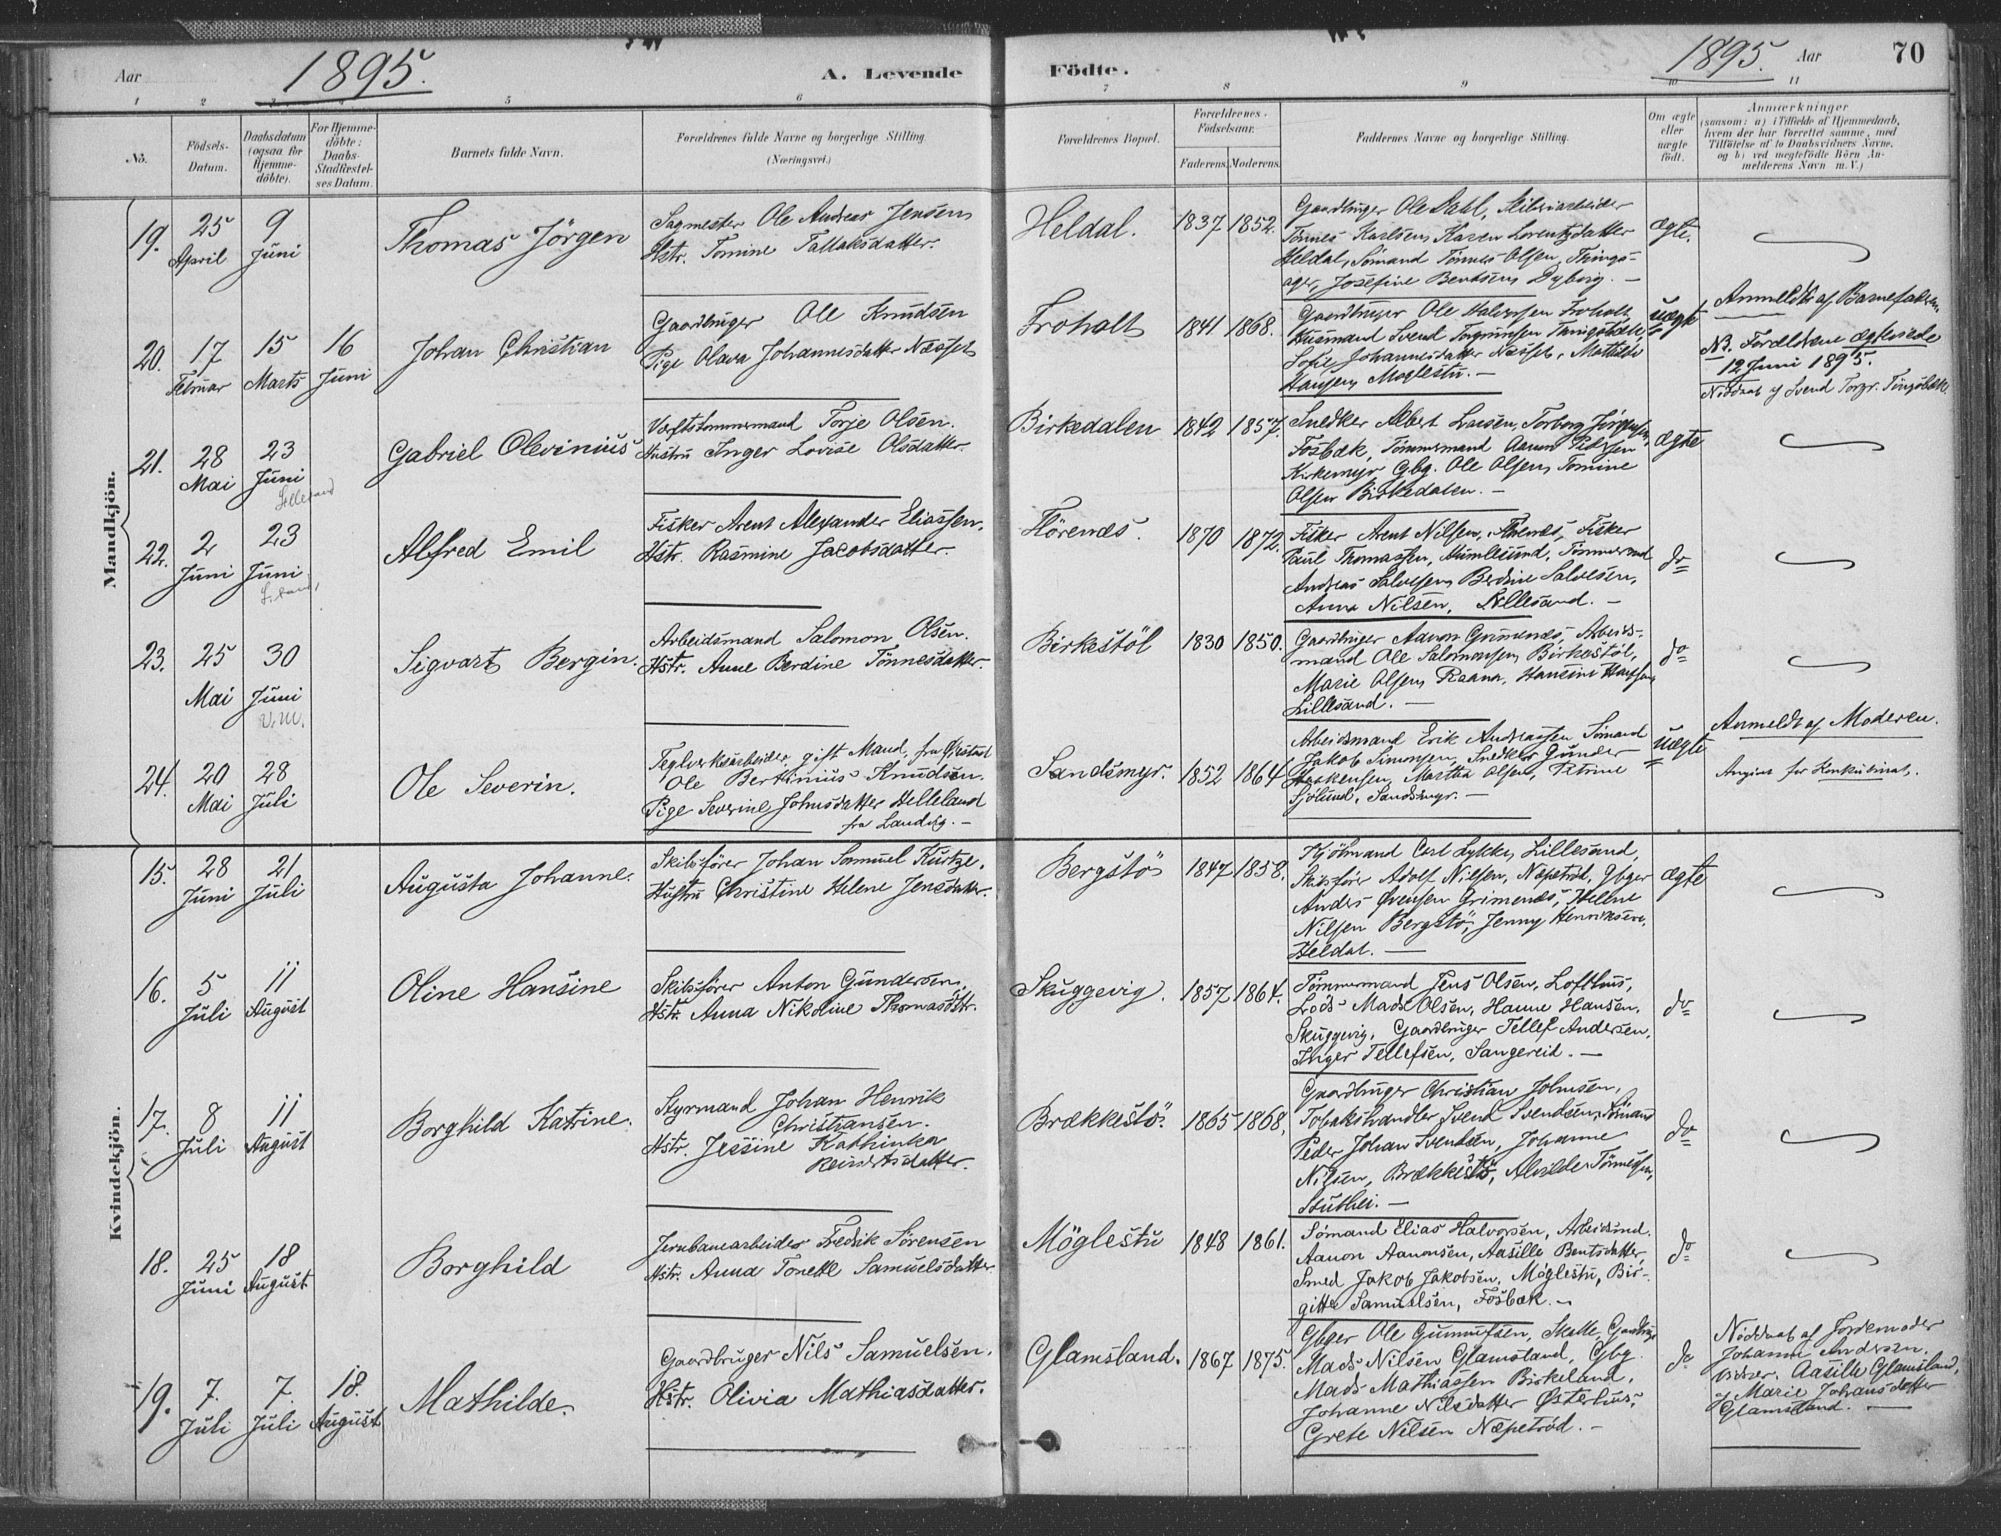 Aar 1895. A. Levende Födte. 1895. Aar 70
1 2 3 4 5 6 7 8 9 10 11
No.
Födsels-Datum.
Daabsdatum (ogsaa for Hjemmedöbte).
For Hjemmedöbte: Daabs-Stadfæstelses Datum.
Barnets fulde Navn.
Forældrenes fulde Navne og borgerlige Stilling.
(Næringsvei.)
Forældrenes Bopæl.
Forældrenes Födselsaar.
Faderens. Moderens.
Faddernes Navne og borgerlige Stilling.
Om ægte eller uægte födt.
Anmærkninger
(saasom: a) i Tilfælde af Hjemmedaab,
hvem der har forrettet samme, med
Tilföielse af to Daabsvidners Navne,
og b) ved uægtefödte Börn Anmelderens Navn m. V.)
Mandkjön.
19. 25 April 9 Juni
Thomas Jörgen
Sagmester Ole Andreas Jensen
Hstr. Tomine Tallaksdatter.
Heldal. 1837 1852.
Gaardbruger Ole Dahl,
Tönnes Karlsen, Karen Lorentzdatter
Heldal, Sömand Tönnes Olsen,
Josefine Bentsen Dyborg. —
ægte.
20. 17 Februar 15 Marts 16 Juni
Johan Christian
Gaardbruger Ole Knudsen
Pige Olava Johannesdatter Næsset
Froholt 1841 1868.
Gaardbruger Ole Halvorsen Froholt,
Husmand Svend
Sofie Johannesdatter Næsset, Mathilde
Hansen, Moglestu. —
uægte
Anmeldt af Barnefaderen.
NB. Foreldrene ægteviede
12 Juni 1895.
Nöddaab af Svend
21. 28 Mai 23 Juni
Lillesand
Gabriel Olevinius
Værftstömmermand Torje Olsen.
Hustru Inger Lovise Olsdatter.
Birkedalen 1842 1857.
Snedker Albert Larsen, Torborg Jörgensen,
Fosbæk, Tömmermand Aanon Pedersen
Kirkemyr Gbg. Ole Olsen, Tomine
Olsen Birkedalen. —
ægte
22. 2 Juni 23 Juni
Alfred Emil
Fisker Arent Alexander Eliassen.
Hstr. Rasmine Jacobsdatter
Flörenæs. 1870 1872.
Fisker Arent Nilsen, Flörenæs, Fisker
Paul Thomassen, Humlesund, Tömmermand
Andreas Salvesen, Berdine Salvesen,
Anna Nilsen, Lillesand. —
do
23. 25 Mai 30 Juni
V.M.
Sigvart Bergin.
Arbeidsmand Salomon Olsen.
Hstr. Anne Berdine Tönnesdatter
Birkestöl 1830 1850.
Gaardbruger Aanon Grimenæs, Arbeids-
mand Ole Salomonsen, Birkestöl,
Marie Olsen Raana, Hansine
Lillesand. —
do
24. 20 Mai 28 Juli
Ole Severin.
Teglverksarbeider, gift Mand, fra Öxstad
Ole Berthinius Knudsen.
Pige Severine Johnsdatter Helleland
fra Landvig. —
Sandsmyr. 1852 1864
Arbeidsmand Erik Andreassen Sömand
Jakob Simonsen, Snedker Gunder
Haakensen, Martha Olsen, Petrine
Sjölund, Sandsmyr. —
Uægte
Anmeldt af Moderen.
Angivet for Konkubinat.
Kvindekjön.
15. 28 Juni 21 Juli
Augusta Johanne.
Skibsförer Johan Samuel Kurtze.
Hustru Christine Helene Jensdatter.
Bergstö 1847 1858.
Kjöbmand Carl Lykke, Lillesand,
Skibsförer Adolf Nilsen, Næpetröd, Gbger
Anders Svensen Grimenæs, Helene
Nilsen Bergstö, Jenny Henriksen.
Heldal. —
ægte
16. 5 Juli 11 August
Oline Hansine
Skibsförer Anton Gundersen,
Hstr. Anna Nikoline Thomasdtr.
Skuggevig. 1857 1864.
Tömmermand Jens Olsen, Lofthus,
Lods Mads Olsen, Hanne Hansen,
Skuggevig, Gaardbruger Tellef Andersen,
Inger Tellefsen, Sangereid. —
do
17. 8 Juli 11 August
Borghild Katrine.
Styrmand Johan Henrik
Christiansen.
Hstr. Jessine Kathinka
Reinertsdatter.
Brækkestö. 1865 1868.
Gaardbruger Christian Johnsen,
Tobakshandler Svend Svendsen, Sömand
Peder Johan Svendsen, Johanne
Nilsen, Brækkestö, Alvilde Tönnesen,
do
18. 25 Juni 18 August
Borghild
Jernbanearbeider Fredrik Sörensen
Hstr. Anna Tonette Samuelsdatter
Möglestu 1848 1861.
Sömand Elias Halvorsen, Arbeidsmd.
Aanon Aanonsen, Aasille Bentsdatter,
Smed Jakob Jakobsen, Möglestu, Bir-
gitte Samuelsen, Fosbæk. —
do
19. 7. Juli 7. Juli 18. August
Mathilde.
Gaardbruger Nils Samuelsen.
Hstr. Olivia Mathiasdatter.
Glamsland. 1867 1875.
Gbger Ole Gunnufsen,
Mads Nilsen Glamsland, Gbg.
Mads Mathiassen Birkeland,
Johanne Nilsdatter Österhus,
Grete Nilsen Næpetröd. —
do
Nöddaab af Jordemoder
Johanne Andersen.
Vidner: Aasille Glamsland,
Marie Johansdatter
Glamsland. —